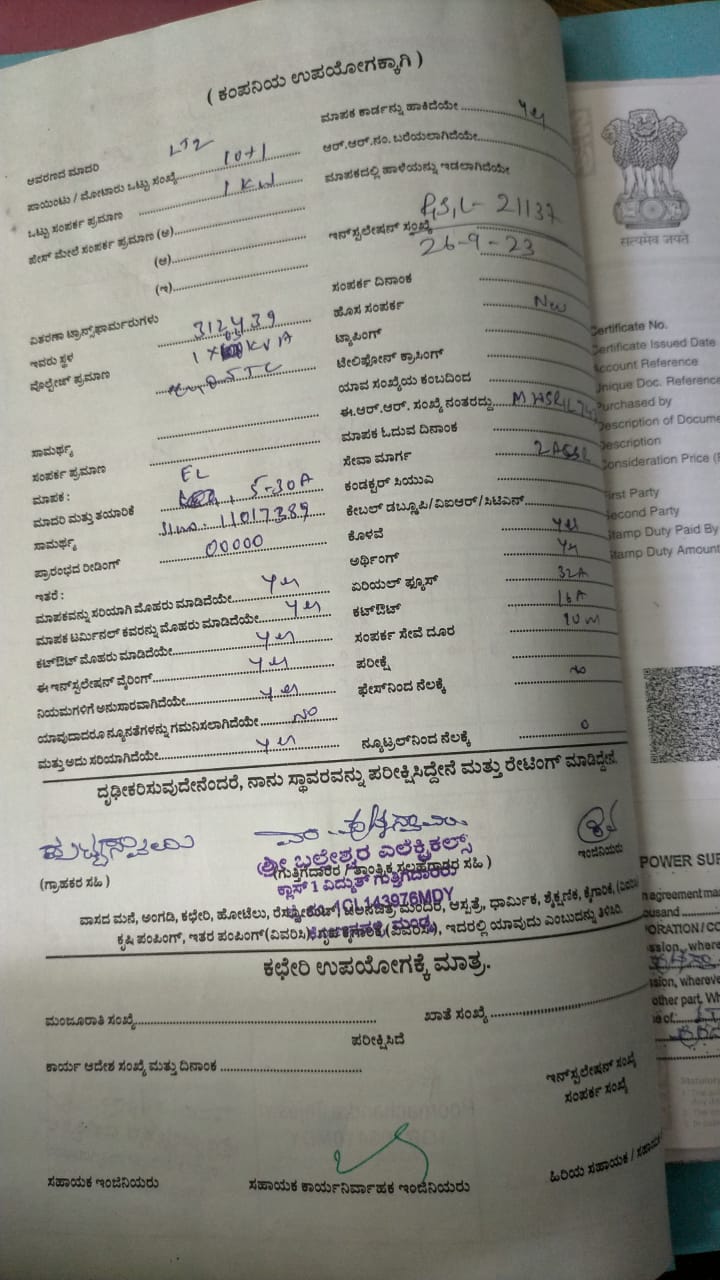 ( ಕಂಪನಿಯ ಉಪಯೋಗಕ್ಕಾಗಿ )
ಆವರಣದ ಮಾದರಿ LT2
ಪಾಯಿಂಟು / ಮೋಟಾರು ಒಟ್ಟು ಸಂಖ್ಯೆ 10+1
ಒಟ್ಟು ಸಂಪರ್ಕ ಪ್ರಮಾಣ 1 KW
ಪೇಸ್ ಮೇಲೆ ಸಂಪರ್ಕ ಪ್ರಮಾಣ (ಅ)
(ಆ)
(ಇ)
ವಿತರಣಾ ಟ್ರಾನ್ಸ್‌ಫಾರ್ಮರುಗಳು
ಇವರು ಸ್ಥಳ 312439
ವೊಲ್ಟೇಜ್ ಪ್ರಮಾಣ KVA
ಸಾಮರ್ಥ್ಯ
ಸಂಪರ್ಕ ಪ್ರಮಾಣ
ಮಾಪಕ : EL
ಮಾದರಿ ಮತ್ತು ತಯಾರಿಕೆ 5-30A
ಸಾಮರ್ಥ್ಯ Sl.no: 11017389
ಪ್ರಾರಂಭದ ರೀಡಿಂಗ್ 00000
ಇತರೆ :
ಮಾಪಕವನ್ನು ಸರಿಯಾಗಿ ಮೊಹರು ಮಾಡಿದೆಯೇ Yes
ಮಾಪಕ ಟರ್ಮಿನಲ್ ಕವರನ್ನು ಮೊಹರು ಮಾಡಿದೆಯೇ Yes
ಕಟ್‌ಔಟ್ ಮೊಹರು ಮಾಡಿದೆಯೇ Yes
ಈ ಇನ್‌ಸ್ಟಲೇಷನ್ ವೈರಿಂಗ್ Yes
ನಿಯಮಗಳಿಗೆ ಅನುಸಾರವಾಗಿದೆಯೇ Yes
ಯಾವುದಾದರೂ ನ್ಯೂನತೆಗಳನ್ನು ಗಮನಿಸಲಾಗಿದೆಯೇ NO
ಮತ್ತು ಅದು ಸರಿಯಾಗಿದೆಯೇ Yes
ಮಾಪಕ ಕಾರ್ಡನ್ನು ಹಾಕಿದೆಯೇ Yes
ಆರ್.ಆರ್.ನಂ. ಬರೆಯಲಾಗಿದೆಯೇ
ಮಾಪಕದಲ್ಲಿ ಹಾಳೆಯನ್ನು ಇಡಲಾಗಿದೆಯೇ
ಇನ್‌ಸ್ಟಲೇಷನ್ ಸಂಖ್ಯೆ 21137
26-9-23
ಸಂಪರ್ಕ ದಿನಾಂಕ
ಹೊಸ ಸಂಪರ್ಕ New
ಟ್ಯಾಪಿಂಗ್
ಟೆಲಿಫೋನ್ ಕ್ರಾಸಿಂಗ್
ಯಾವ ಸಂಖ್ಯೆಯ ಕಂಬದಿಂದ
ಈ.ಆರ್.ಆರ್. ಸಂಖ್ಯೆ ನಂತರದ್ದು
ಮಾಪಕ ಓದುವ ದಿನಾಂಕ
ಸೇವಾ ಮಾರ್ಗ
ಕಂಡಕ್ಟರ್ ಸಿಯುವಿ
ಕೇಬಲ್ ಡಬ್ಲ್ಯೂಪಿ/ವಿಐಆರ್/ಸಿಟಿಎಸ್
ಕೊಳವೆ Yes
ಅರ್ಥಿಂಗ್ Yes
ಏರಿಯಲ್ ಫ್ಯೂಸ್ 32A
ಕಟ್‌ಔಟ್ 16A
ಸಂಪರ್ಕ ಸೇವೆ ದೂರ 10m
ಪರೀಕ್ಷೆ
ಫೇಸ್‌ನಿಂದ ನೆಲಕ್ಕೆ
ನ್ಯೂಟ್ರಲ್‌ನಿಂದ ನೆಲಕ್ಕೆ 0
ದೃಢೀಕರಿಸುವುದೇನೆಂದರೆ, ನಾನು ಸ್ಥಾವರವನ್ನು ಪರೀಕ್ಷಿಸಿದ್ದೇನೆ ಮತ್ತು ರೇಟಿಂಗ್ ಮಾಡಿದ್ದೇನೆ.
(ಗ್ರಾಹಕರ ಸಹಿ )
(ಗುತ್ತಿಗೆದಾರರ / ತಾಂತ್ರಿಕ ಸಲಹೆಗಾರರ ಸಹಿ )
ಇಂಜಿನಿಯರು
ಶ್ರೀ ಬಲೇಶ್ವರ ಎಲೆಕ್ಟ್ರಿಕಲ್ಸ್
ಕ್ಲಾಸ್ 1 ವಿದ್ಯುತ್ ಗುತ್ತಿಗೆದಾರರು
1CL143976MDY
ವಾಸದ ಮನೆ, ಅಂಗಡಿ, ಕಛೇರಿ, ಹೋಟೆಲು, ಮಂದಿರ, ಆಸ್ಪತ್ರೆ, ಧಾರ್ಮಿಕ, ಶೈಕ್ಷಣಿಕ, ಕೈಗಾರಿಕೆ, (ವಿವರಿಸಿ)
ಕೃಷಿ ಪಂಪಿಂಗ್, ಇತರ ಪಂಪಿಂಗ್(ವಿವರಿಸಿ), ಗೃಹ ಕೈಗಾರಿಕೆ,(ವಿವರಿಸಿ), ಇದರಲ್ಲಿ ಯಾವುದು ಎಂಬುದನ್ನು ತಿಳಿಸಿರಿ.
ಕಛೇರಿ ಉಪಯೋಗಕ್ಕೆ ಮಾತ್ರ.
ಮಂಜೂರಾತಿ ಸಂಖ್ಯೆ ಖಾತೆ ಸಂಖ್ಯೆ
ಪರೀಕ್ಷಿಸಿದೆ
ಕಾರ್ಯ ಆದೇಶ ಸಂಖ್ಯೆ ಮತ್ತು ದಿನಾಂಕ
ಇನ್‌ಸ್ಟಲೇಷನ್ ಸಂಖ್ಯೆ
ಸಂಪರ್ಕ ಸಂಖ್ಯೆ
ಸಹಾಯಕ ಇಂಜಿನಿಯರು ಸಹಾಯಕ ಕಾರ್ಯನಿರ್ವಾಹಕ ಇಂಜಿನಿಯರು ಹಿರಿಯ ಸಹಾಯಕ /
सत्यमेव जयते
Certificate No.
Certificate Issued Date
Account Reference
Unique Doc. Reference
Purchased by
Description of Docume
Description
Consideration Price (
First Party
Second Party
Stamp Duty Paid By
Stamp Duty Amount
POWER SUP